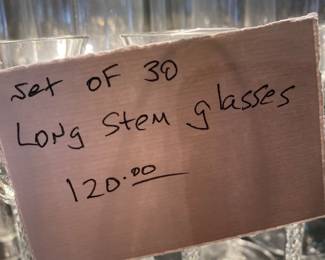 Set OF 30
Long Stem glasses
120.00